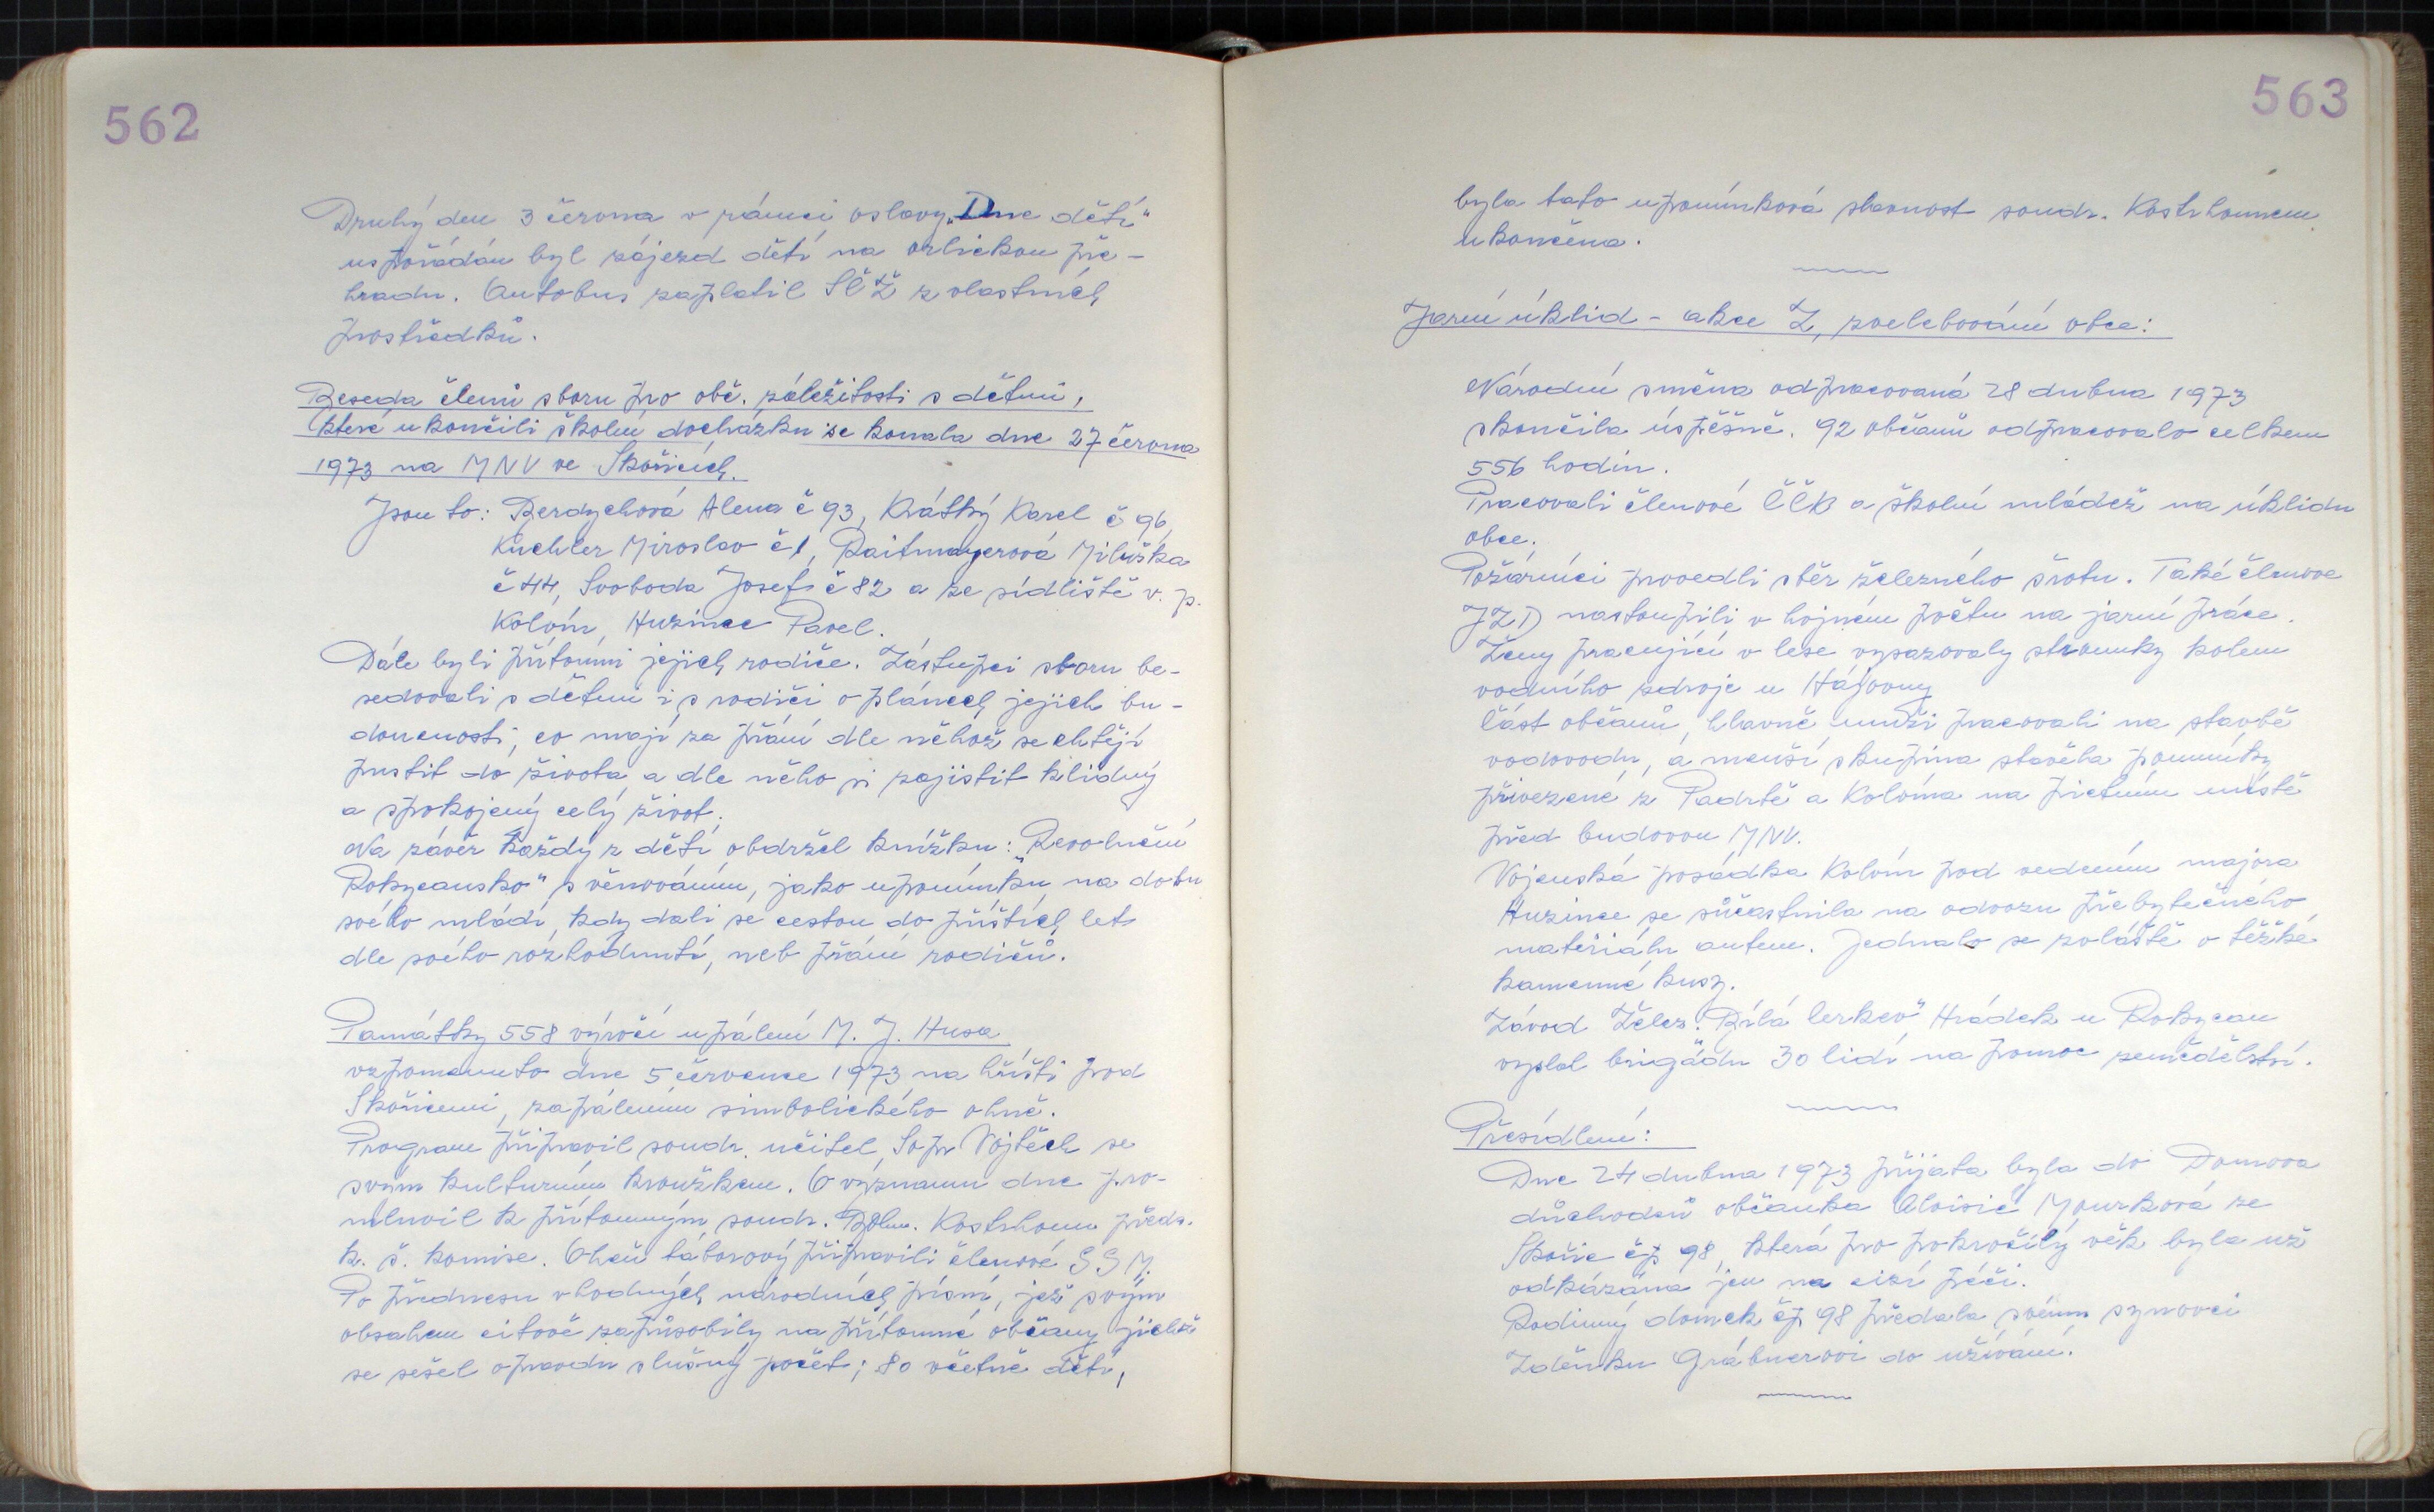 562
Druhý den 3 června v rámci oslavy „Dne dětí"
uspořádán byl zájezd dětí na orlickou pře-
hradu. Autobus zaplatil SČŽ z vlastních
prostředků.
Beseda členů sboru pro obč. záležitosti s dětmi,
které ukončili školní docházku se konala dne 27 června
1973 na MNV ve Skořicích.
Jsou to: Berdychová Alena č 93, Krátký Karel č 96,
Küchler Miroslav č 1, Raitmayerová Miluška
č 44, Svoboda Josef č 82 a ze sídliště v. p.
Kolvín, Huzinec Pavel.
Dále byli přítomni jejich rodiče. Zástupci sboru be-
sedovali s dětmi i s rodiči o plánech jejich bu-
doucnosti, co mají za přání dle něhož se chtějí
pustit do života a dle něho si zajistit klidný
a spokojený celý život.
Na závěr každý z dětí obdržel knížku: „Revoluční
Rokycansko" s věnováním, jako upomínku na dobu
svého mládí, kdy dali se cestou do příštích let
dle svého rozhodnutí, neb přání rodičů.
Památky 558 výročí upálení M. J. Husa
vzpomenuto dne 5 července 1973 na hřišti pod
Skořicemi, zapálením simbolického ohně.
Program připravil soudr. učitel, Sopr Vojtěch se
svým kulturním kroužkem. O významu dne pro-
mluvil k přítomným soudr. Bohm. Kostrhoun předs.
k. š. komise. Oheň táborový připravili členové SSM.
Po přednesu vhodných národních písní, jež svým
obsahem citově zapůsobily na přítomné občany jichž
se sešel opravdu slušný počet; 80 včetně dětí,
563
byla tato upomínková slavnost soudr. Kostrhounem
ukončena.
Jarní úklid - akce Z, zvelebování obce:
Národní směna odpracovaná 28 dubna 1973
skončila úspěšně. 92 občanů odpracovalo celkem
556 hodin.
Pracovali členové ČČK a školní mládež na úklidu
obce.
Požárníci provedli sběr železného šrotu. Také členove
JZD nastoupili v hojném počtu na jarní práce.
Ženy pracující v lese vysazovaly stromky kolem
vodního zdroje u Hájovny
Část občanů, hlavně muži pracovali na stavbě
vodovodu, a menší skupina stavěla pomníky
přivezené z Padrtě a Kolvína na pietním místě
před budovou MNV.
Vojenská posádka Kolvín pod vedením majora
Huzince se súčastnila na odvozu přebytečného
materiálu autem. Jednalo se zvláště o těžké
kamenné kusy.
Závod Želez. „Bílá Cerkev" Hrádek u Rokycan
vyslal brigádu 30 lidí na pomoc zemědělství.
Přesídlení:
Dne 24 dubna 1973 přijata byla do Domova
důchodců občanka Aloisie Mourková ze
Skořic čp 98, která pro pokročilý věk byla už
odkázána jen na cizí péči.
Rodinný domek čp 98 předala svému synovci
Zdeňku Grábnerovi do užívání.